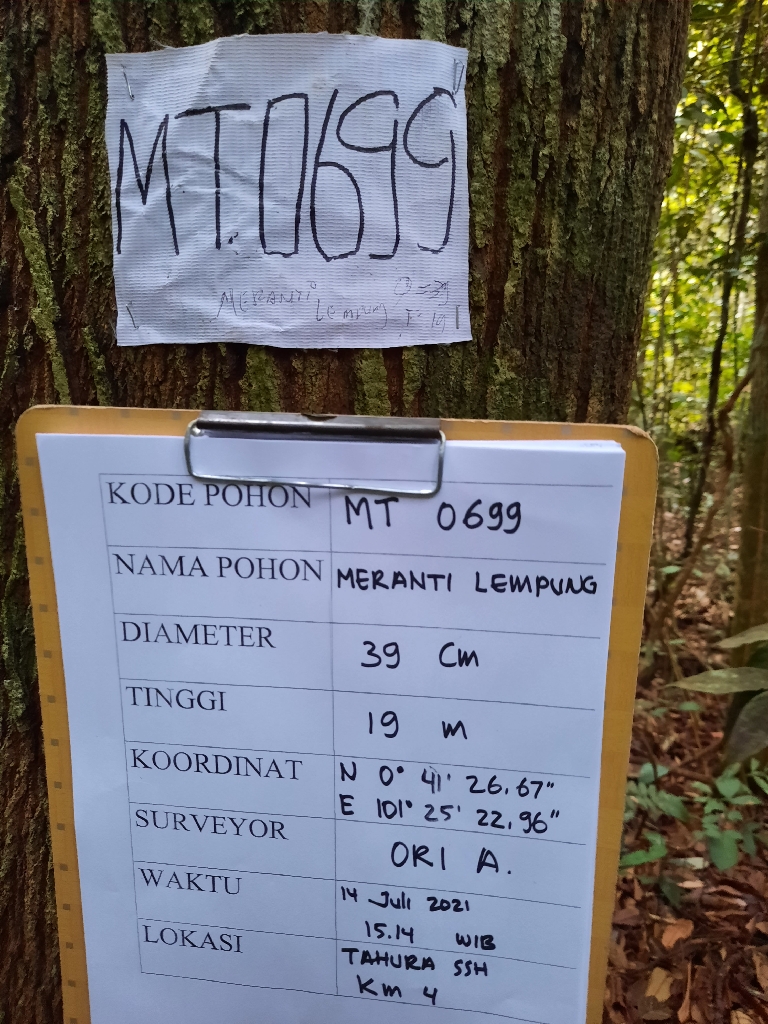 MT.0699
MERANTI Lempung
D = 39
T = 19
KODE POHON MT 0699
NAMA POHON MERANTI LEMPUNG
DIAMETER 39 Cm
TINGGI 19 m
KOORDINAT N 0° 41' 26.67"
E 101° 25' 22.96"
SURVEYOR ORI A.
WAKTU 14 Juli 2021
15.14 WIB
LOKASI TAHURA SSH
Km 4